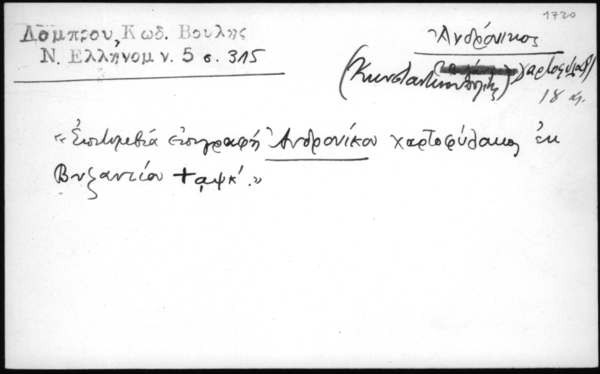 1720
Λάμπρου, Κωδ. Βουλης
Ν. Ελληνομν. 5 σ. 315
Ἀνδρόνικος
(Κωνσταντινουπολίτης) χαρτοφύλαξ
18 αι.
«Ἐπιτυμβία ἐπιγραφή Ἀνδρονίκου χαρτοφύλακος ἐκ
Βυζαντίου + ͵αψκʹ.»